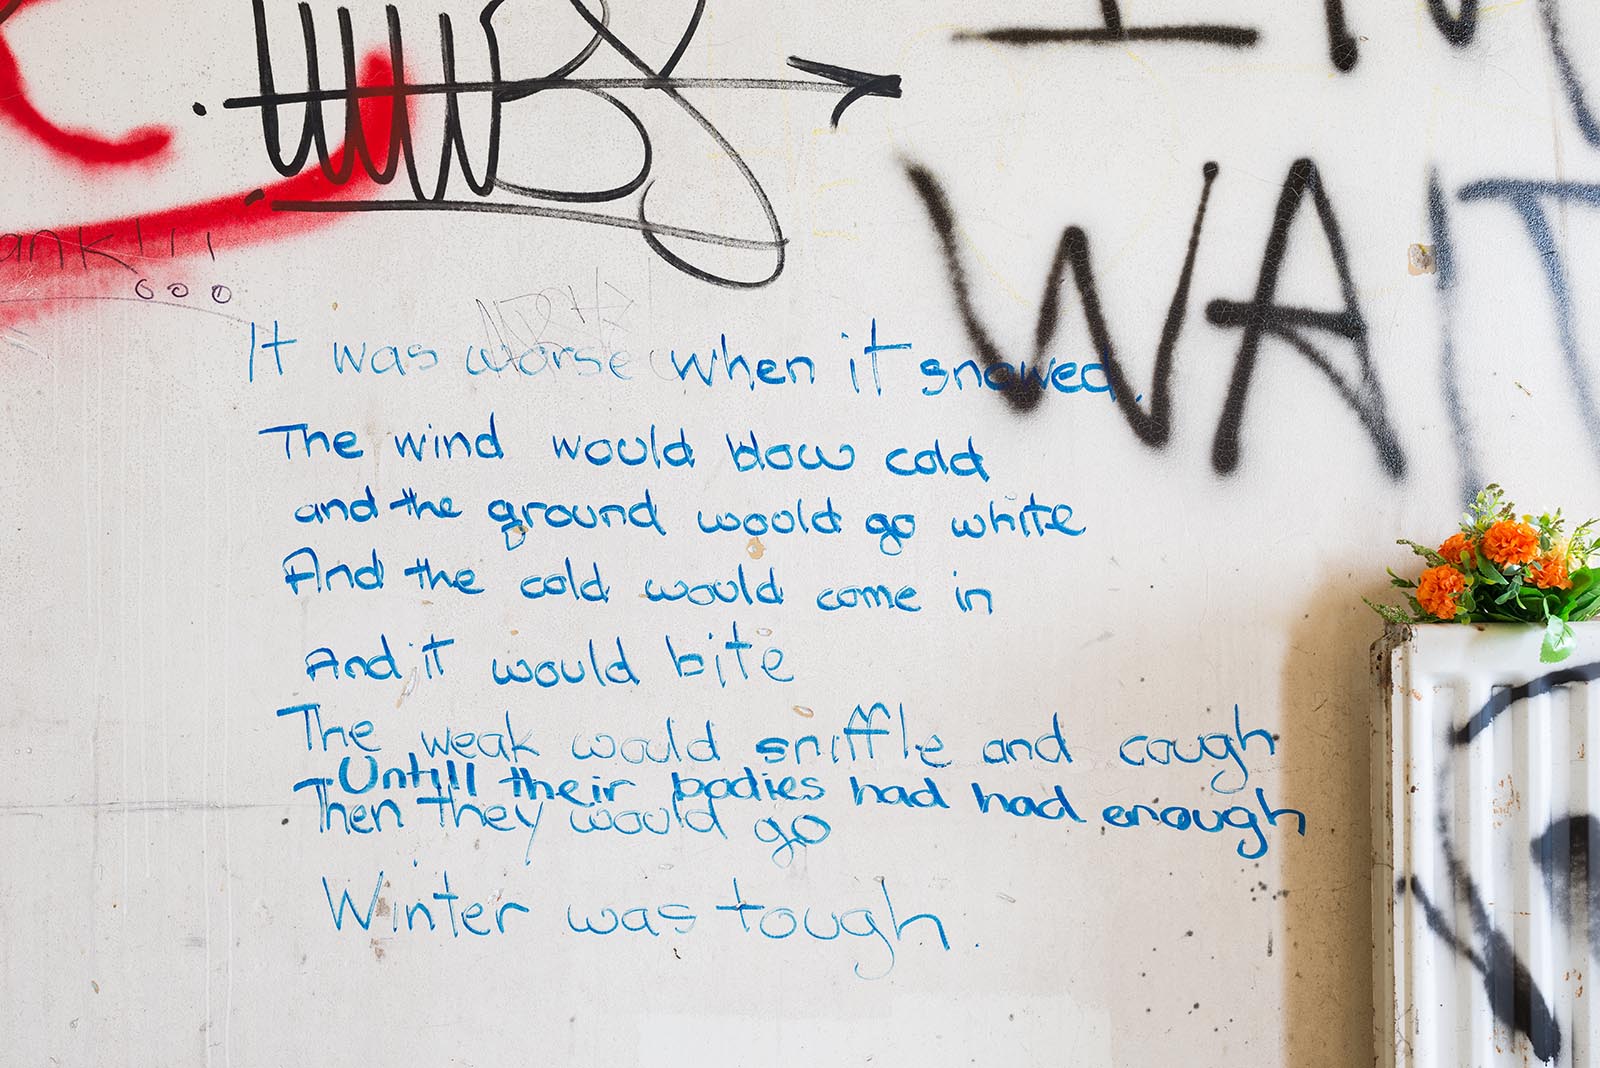 WAIT
It was worse when it snowed.
The wind would blow cold
and the ground would go white
And the cold would come in
And it would bite
The weak would sniffle and cough
Untill their bodies had had enough
Then they would go
Winter was tough.